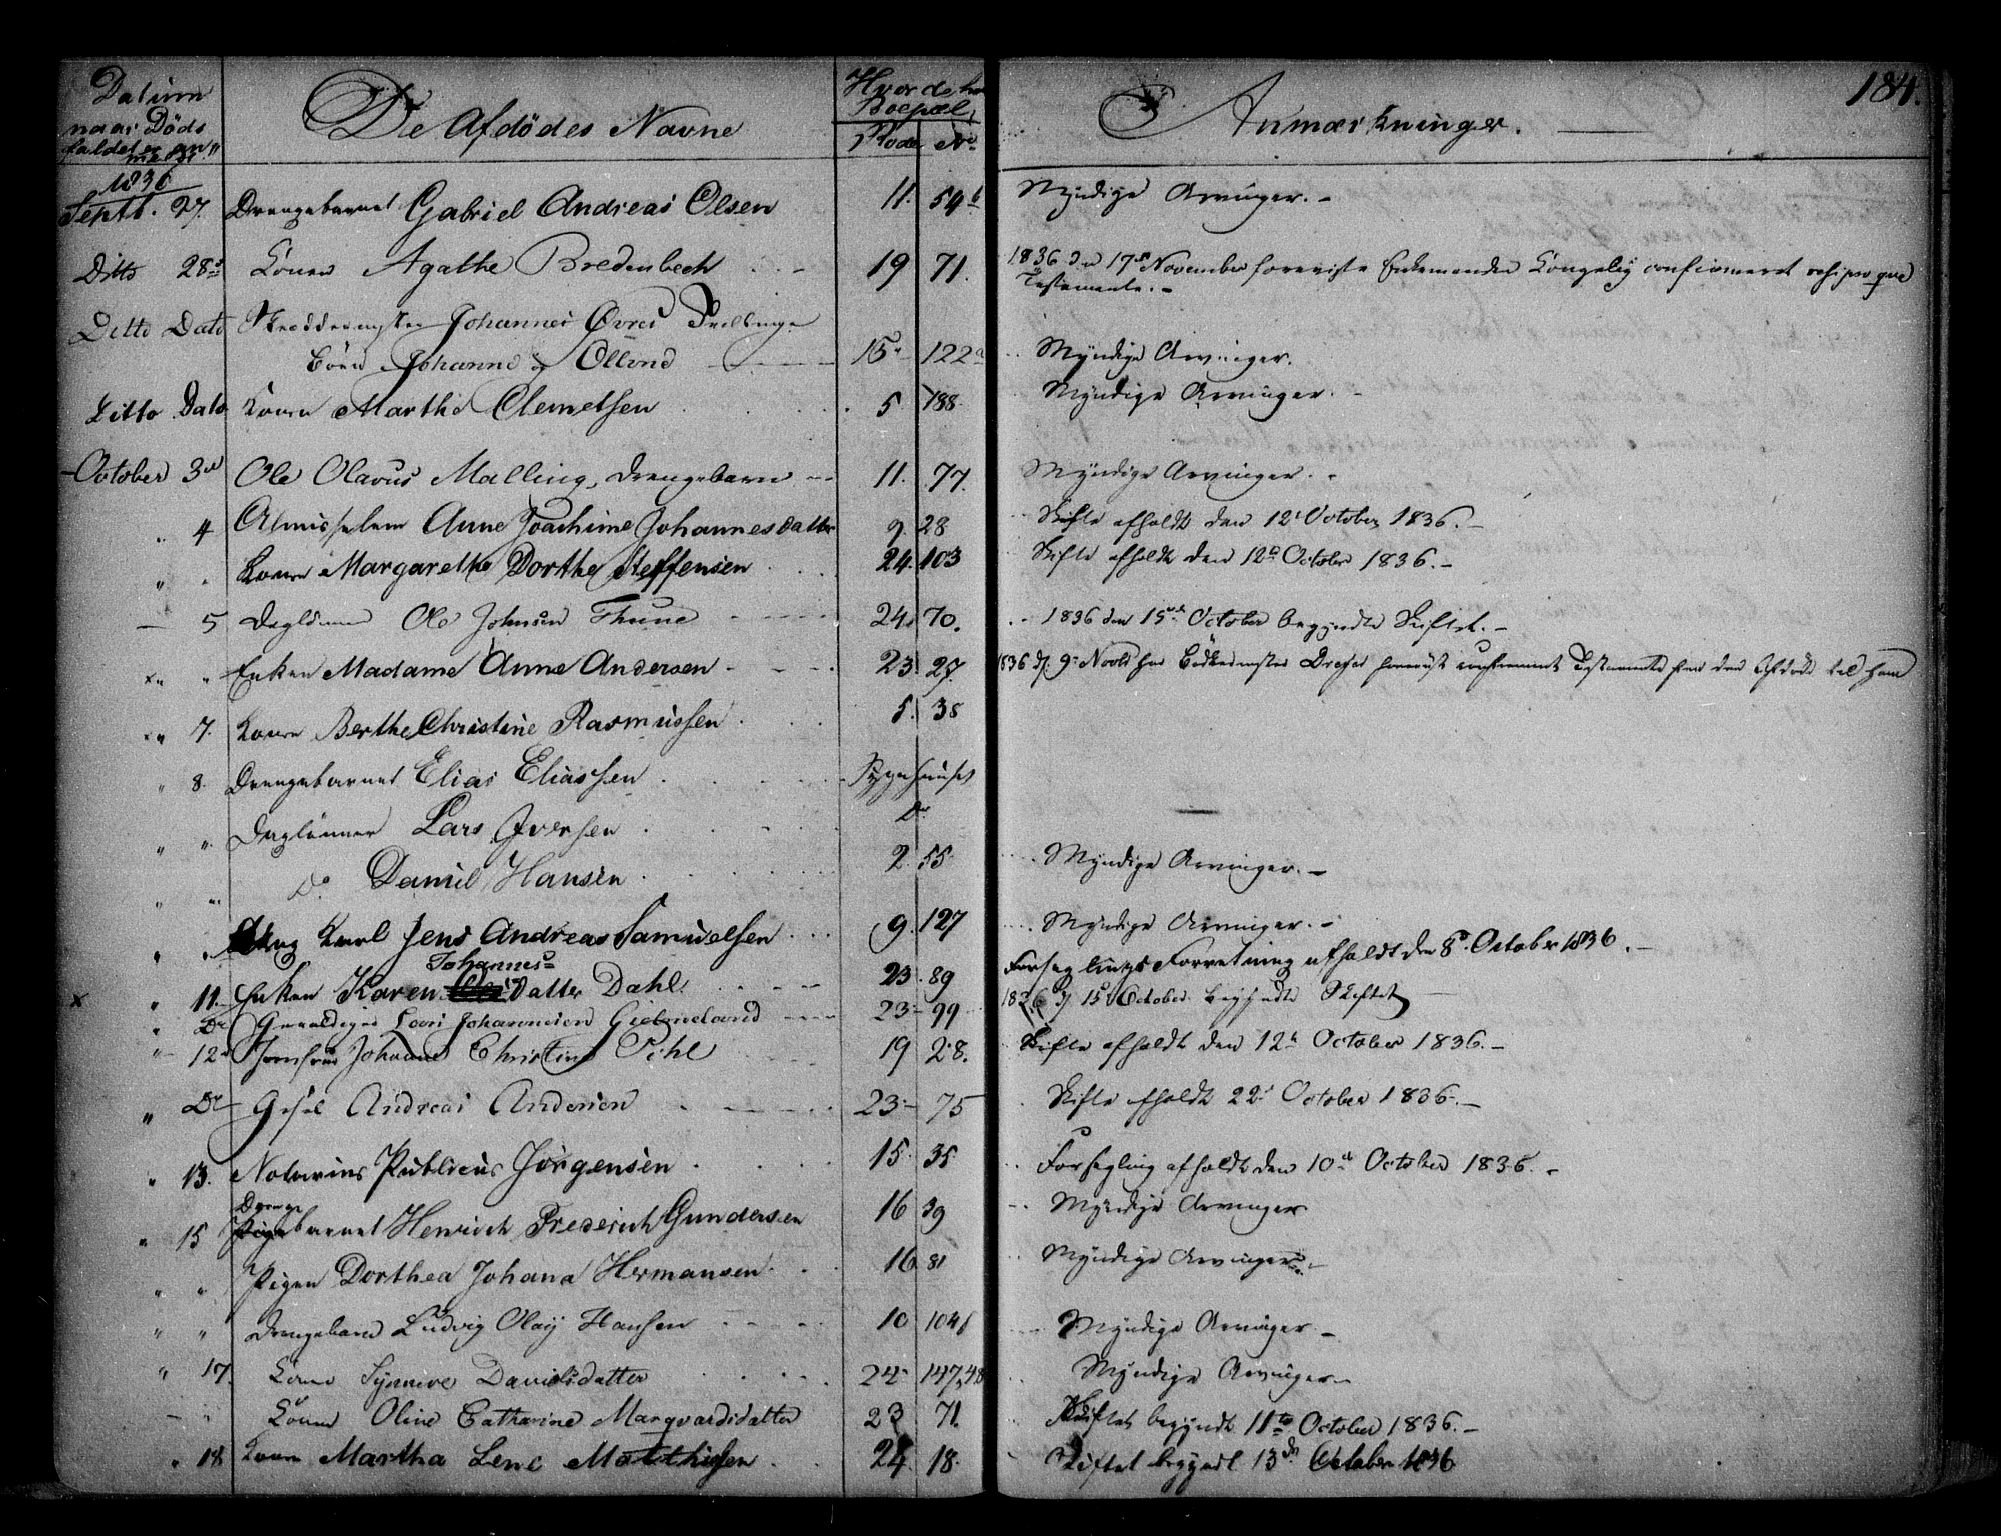 184.
Datum naar Døds faldet er an„ meldt
De Afdødes Navne
Hvor de har Boepæl,
Rode No
Anmærkninger.
1836
Septb. 27. Drengebarnet Gabriel Andreas Olsen 11. 54b Myndige Arvinger.
Ditto 28de Konen Agathe Bredenbech 19 71. 1836 den 17de November foreviste Enkemanden Kongelig confirmeret reciproque
Testamente.
Ditto Dato Skreddermester Johannes Øvres Tvillinge
Børn Johanne og Ollene 15 122a Myndige Arvinger.
Ditto Dato Konen Marthe Clemetsen 5 188 Myndige Arvinger.
October 3de Ole Olavus Malling, Drengebarn 11. 77. Myndige Arvinger.
„ 4 Almisselem Anne Joachime Johannesdatter 9. 28 Skifte afholdt den 12te October 1836.
„ „ Konen Margarethe Dorthe Steffensen 24. 103 Skifte afholdt den 12te October 1836.
— 5 Daglønner Ole Johnsen Thune 24. 70. 1836 den 15de October begyndte Skiftet.
„ „ Enken Madame Anne Andersen 23. 27. 1836 d. 9de Novbr har Bødkermester Dreyer forevist confirmeret Testamente fra den Afdøde til ham
„ 7. Konen Berthe Christine Rasmussen 5. 38
„ 8. Drengebarnet Elias Eliassen Sygehuset
„ „ Daglønner Lars Iversen Do
„ „ Do Daniel Hansen 2. 55 Myndige Arvinger.
„ „ Ung Karl Jens Andreas Samuelsen 9. 127 Myndige Arvinger.
„ 11. Enken Karen Johannes Datter Dahl 23. 89 Forseglings Forretning afholdt den 8de October 1836.
„ Do Gevaldiger Lars Johannesen Gielmeland 23 99 1836 d. 15de October begyndte Skiftet
„ 12te Jomfrue Johanne Christine Pihl 19 28. Skifte afholdt den 12te October 1836.
„ Do Gesel Andreas Andersen 23 75 Skifte afholdt 22de October 1836.
„ 13. Notarius Publicus Jørgensen 15. 35 Forsegling afholdt den 10de October 1836.
„ 15 Drenge barnet Henrich Frederich Gundersen 16 39 Myndige Arvinger
„ „ Pigen Dorthea Johana Hermansen 16 81 Myndige Arvinger
„ „ Drengebarn Ludvig Olaij Hansen 10 104b Myndige Arvinger
„ 17. Konen Synneve Davidsdatter 24 147,48 Myndige Arvinger
„ Konen Oline Catharine Marqvardsdatter 23 71. Skiftet begyndt 11te October 1836.
„ 18 Konen Martha Lene Matthissen 24 18. Skiftet begyndt 13de October 1836